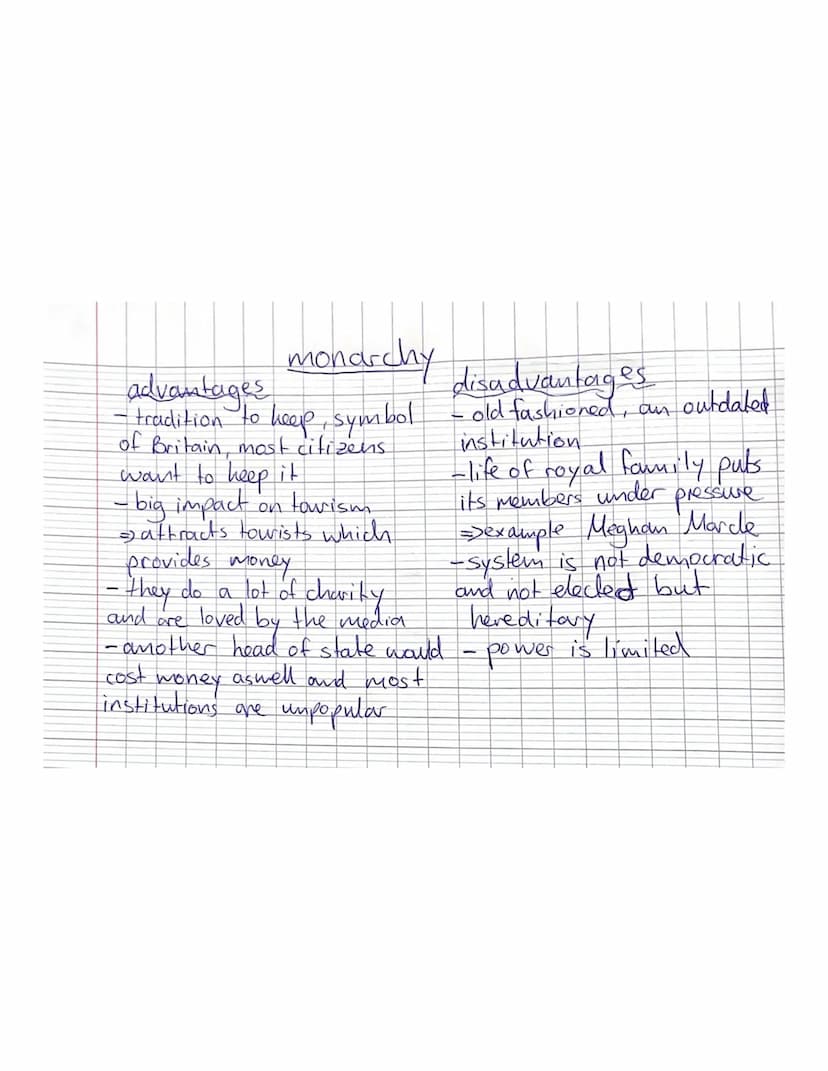 monarchy
advantages
- tradition to keep, symbol
of Britain, most citizens
want to keep it
- big impact on tourism
⇒ attracts tourists which
provides money
- they do a lot of charity
and are loved by the media
- another head of state would
cost money aswell and most
institutions are unpopular
disadvantages
- old fashioned, an outdated
institution
- life of royal family puts
its members under pressure
⇒ example Meghan Marcle
- system is not democratic
and not elected but
hereditary
- power is limited